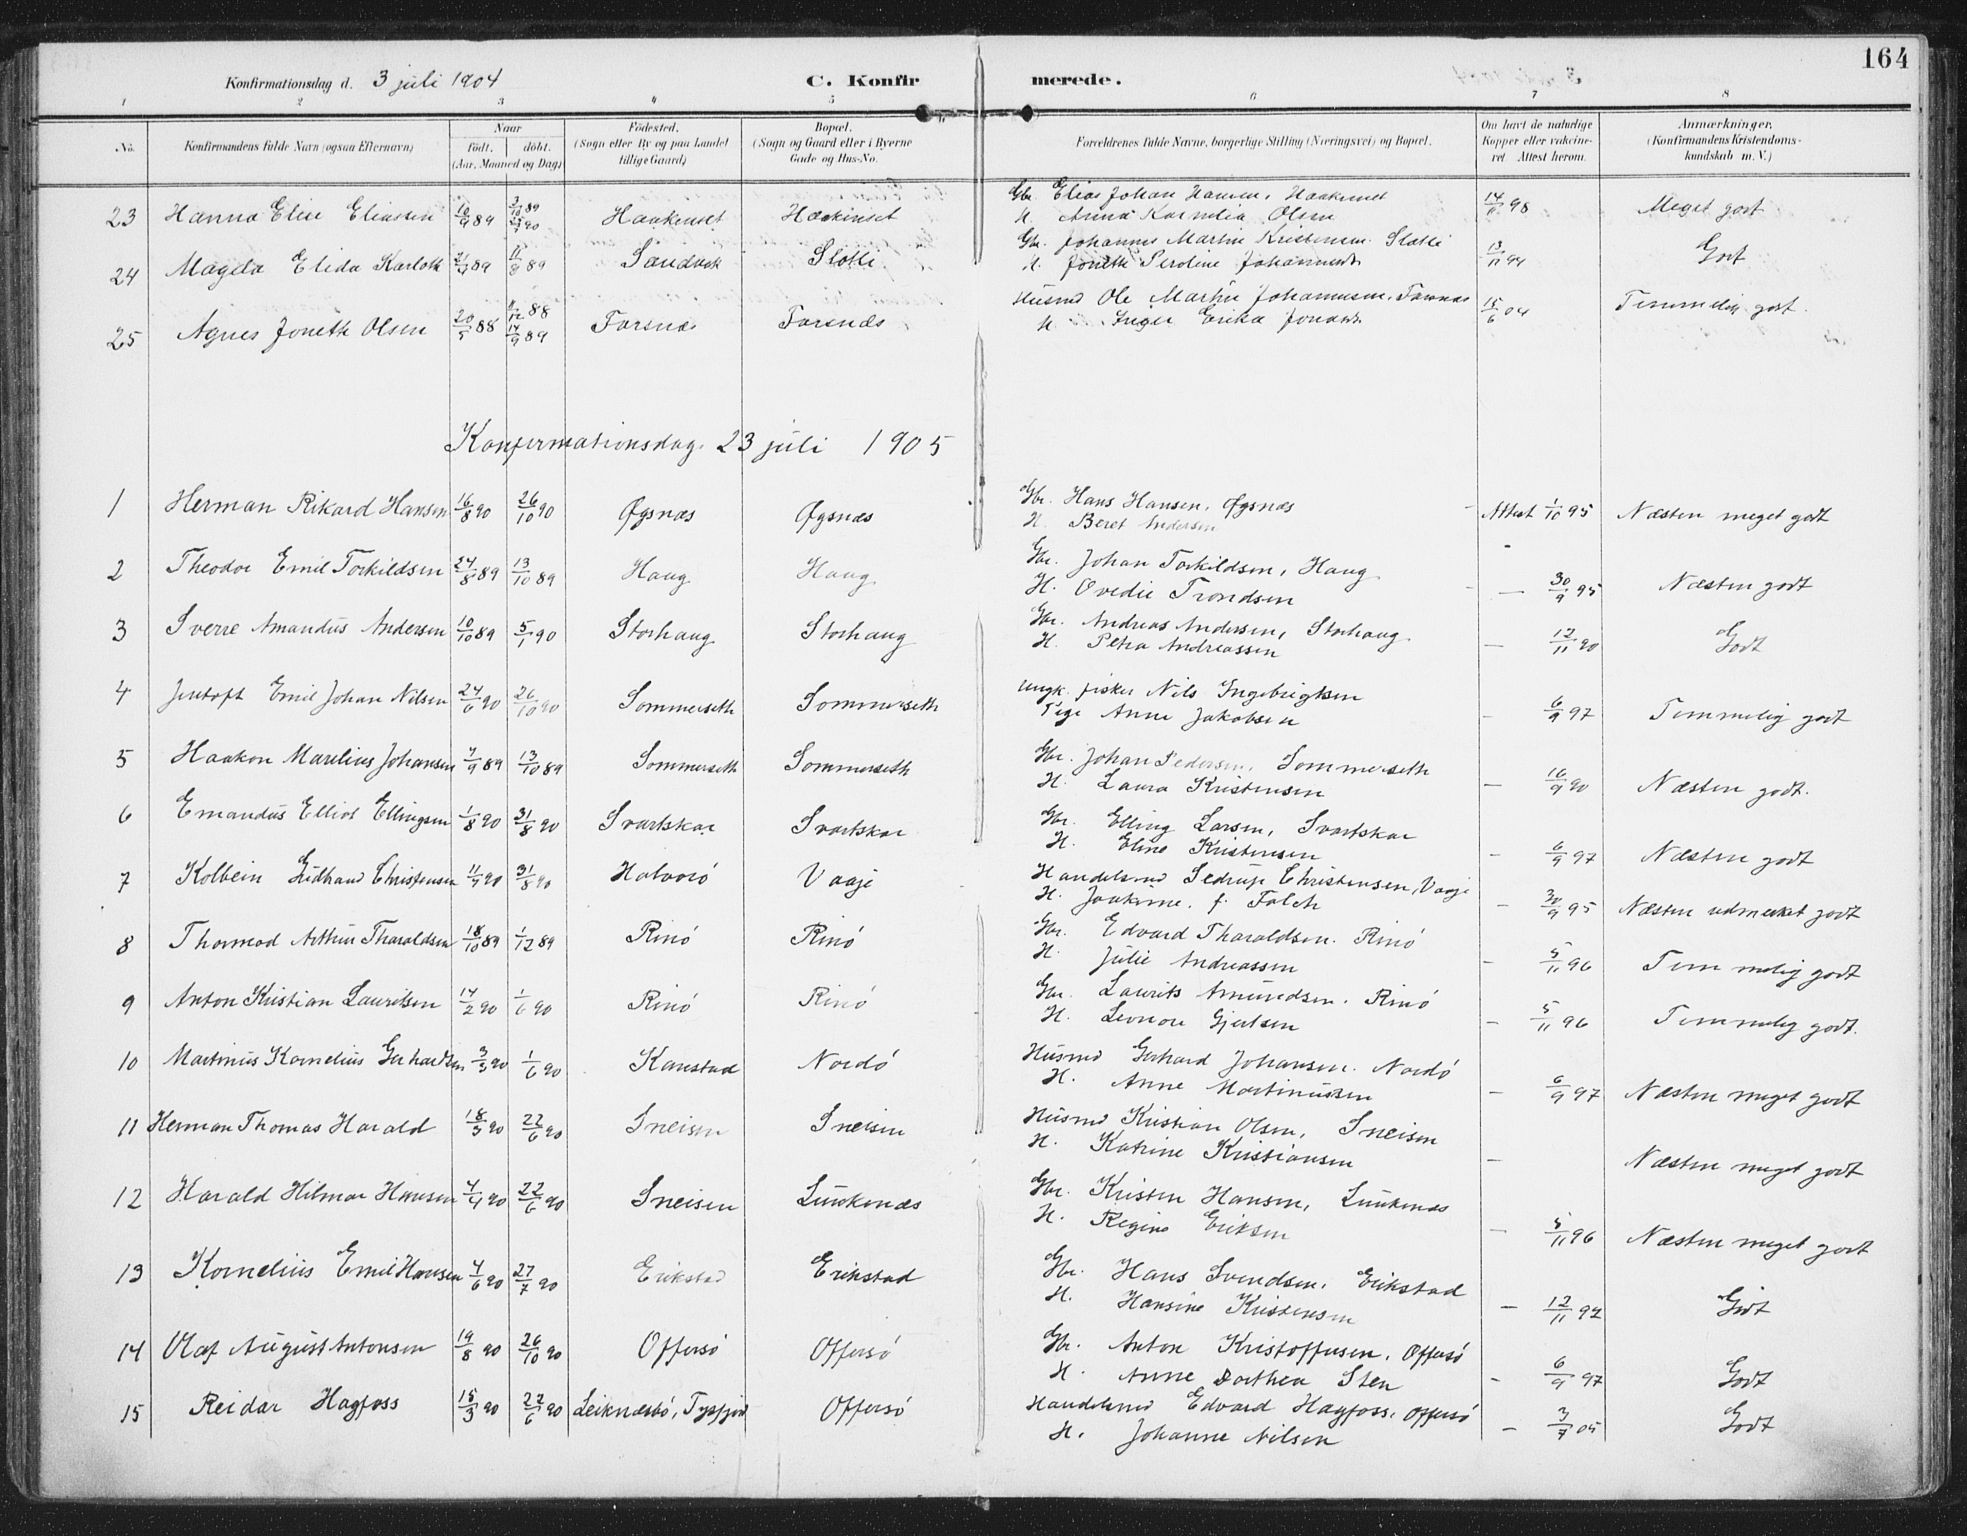 164
Konfirmationsdag d. 3 juli 1904 C. Konfirmerede.
1 2 3 4 5 6 7 8
No. Konfirmandens fulde Navn (ogsaa Efternavn) Naar födt. döbt. (Aar, Maaned og Dag) Födested. (Sogn eller By og paa Landet tillige Gaard) Bopæl. (Sogn og Gaard eller i Byerne Gade og Hus-No. Forældrenes fulde Navne, borgerlige Stilling (Næringsvei) og Bopæl. Om havt de naturlige Kopper eller vakcineret. Attest herom. Anmærkninger. (Konfirmandens Kristendomskundskab m. V.)
23 Hanna Elise Eliassen 16/9 89 3/10 89 Haakenset Haakinset Gbr. Elias Johan Hansen, Haakenset 14/11 98 Meget godt
H. Anna Kornelia Olsen
24 Magda Elida Karlotte 21/4 89 11/8 89 Sandvik Slotti Gbr. Johannes Martin Kristensen Slotti 13/11 94 Godt
H. Joneth Peroline Johannesdt
25 Agnes Joneth Olsen 20/5 88 11/12 88 14/9 89 Taresnæs Taresnæs Husmd Ole Martin Johannesen, 15/6 04 Temmelig godt.
H. Inger Erika Jonasdt
Konfirmationsdag. 23 juli 1905
1 Herman Rikard Hansen 16/8 90 26/10 90 Øgsnæs Øgsnæs Gbr. Hans Hansen, Øgsnæs Attest 1/10 95 Næsten meget godt
H. Beret Andersen
2 Theodor Emil Torkildsen 24/8 89 13/10 89 Haug Haug Gbr. Johan Torkildsen, Haug — 30/9 95 Næsten godt
H. Ovedie Trondsen
3 Sverre Amandus Andersen 10/10 89 5/1 90 Storhaug Storhaug Gbr. Andreas Andersen, Storhaug — 12/11 90 Godt
H. Petra Andreassen
4 Jentoft Emil Johan Nilsen 24/6 90 26/10 90 Sommerseth Sommerseth Ungk. fisker Nils Ingebrigtsen — 6/9 97 Temmelig godt
Pige Anne Jakobsen
5 Haakon Marelius Johansen 7/9 89 13/10 89 Sommerseth Sommerseth Gbr. Johan Pedersen, Sommerseth — 16/9 90 Næsten godt.
H. Laura Kristensen
6 Emandus Elliot Ellingsen 1/8 90 31/8 90 Svartskar Svartskar Gbr. Elling Larsen, Svartskar — 6/9 97 Næsten godt
H. Eline Kristensen
7 Kolbein Christensen 11/7 90 31/8 90 Halvorö Vaaje Handelsmd Sedrup Christensen, Vaaje — 30/9 95 Næsten udmerket godt
H. Joakime. f. Falch
8 Thormod Arthur Tharaldsen 18/10 89 1/12 89 Rinö Rinö Gbr. Edvard Tharaldsen. Rinö — 5/11 96 Temmelig godt
H. Julie Andreassen
9 Anton Kristian Lauritsen 14/2 90 1/6 90 Rinö Rinö Gbr. Laurits Amundsen. Rinö — 5/11 96 Temmelig godt.
H. Leonore Gjertsen
10 Martinus Kornelius Gerhardtsen 3/3 90 1/6 90 Kanstad Nordö Husmd Gerhard Johansen. Nordö — 6/9 97 Næsten meget godt
H. Anne Martinussen
11 Herman Thomas Harald 18/3 90 22/6 90 Sneisen Sneisen Husmd Kristian Olsen, Sneisen — Næsten meget godt
H. Katrine Kristiansen
12 Harald Hilmar Hansen 7/4 90 22/6 90 Sneisen Luukenæs Gbr. Kristen Hansen, Luukenæs — 5/11 96 Næsten meget godt
H. Regine Eriksen
13 Kornelius Emil Hansen 4/6 90 27/7 90 Erikstad Erikstad Gbr. Hans Svendsen, Erikstad — 12/11 92 Godt
H. Hansine Kristensen
14 Olaf August Antonsen 19/8 90 26/10 90 Offersö Offersö Gbr. Anton Kristoffersen, Offersö — 6/9 97 Godt
H. Anne Dorthea Sten
15 Reidar Hagfoss 15/3 90 22/6 90 Leiknæsbö, Tysfjord Offersö Handelsmd Edvard Hagfoss, Offersö — 3/7 05 Godt
H. Johanne Nilsen